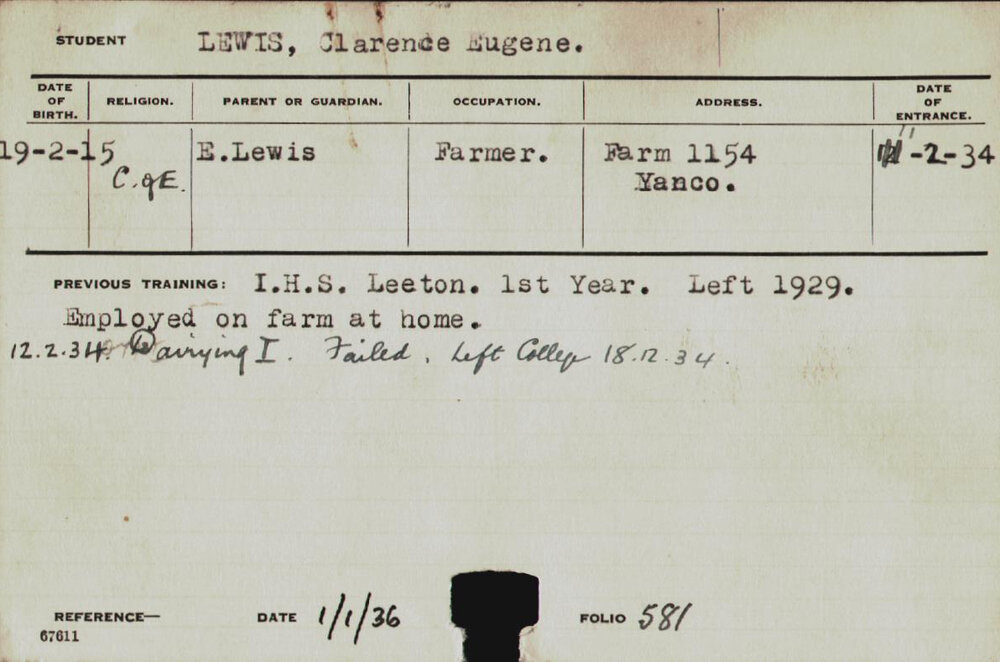 STUDENT LEWIS, Clarence Eugene.
DATE OF BIRTH. RELIGION. PARENT OR GUARDIAN. OCCUPATION. ADDRESS. DATE OF ENTRANCE.
19-2-15 E.Lewis Farmer. Farm 1154 -2-34
C. of E. Yanco.
PREVIOUS TRAINING: I.H.S. Leeton. 1st Year. Left 1929.
Employed on farm at home.
12.2.34 Dairying I. Failed. Left College 18.12.34.
REFERENCE— DATE 1/1/36 FOLIO 581
67611